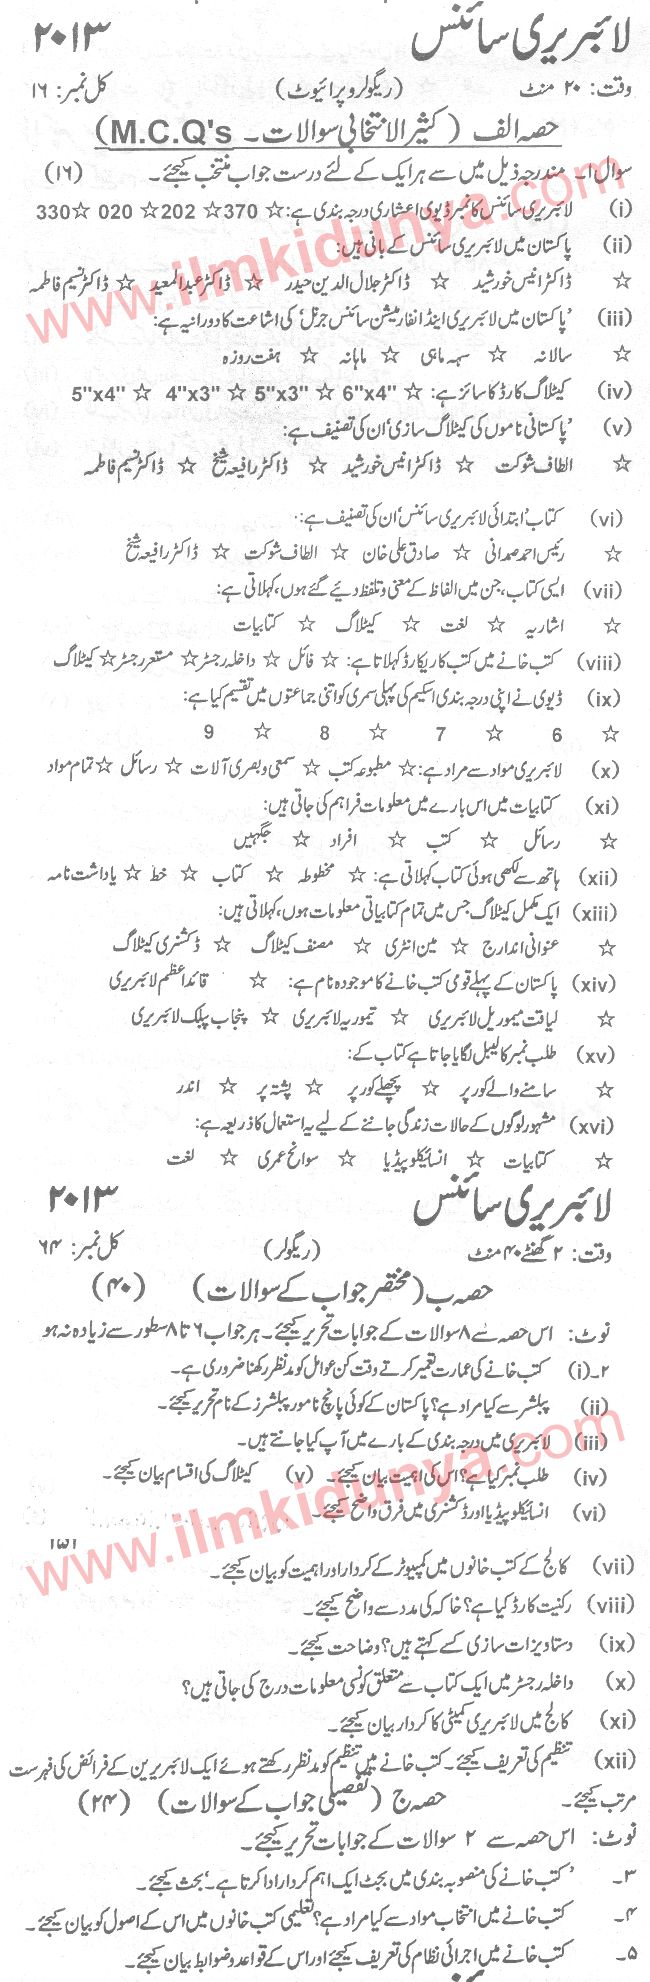 لائبریری سائنس ۲۰۱۳
وقت: ۲۰ منٹ (ریگولر و پرائیوٹ) کل نمبر: ۱۶
حصہ الف (کثیر الانتخابی سوالات ۔ M.C.Q's)
سوال۱۔ مندرجہ ذیل میں سے ہر ایک کے لئے درست جواب منتخب کیجئے۔ (۱۶)
(i) لائبریری سائنس کا نمبر ڈیوی اعشاری درجہ بندی ہے: ☆ 370 ☆ 202 ☆ 020 ☆ 330
(ii) پاکستان میں لائبریری سائنس کے بانی ہیں:
☆ ڈاکٹر انیس خورشید ☆ ڈاکٹر جلال الدین حیدر ☆ ڈاکٹر عبدالمعید ☆ ڈاکٹر نسیم فاطمہ
(iii) 'پاکستان میں لائبریری اینڈ انفارمیشن سائنس جرنل' کی اشاعت کا دورانیہ ہے:
☆ سالانہ ☆ سہ ماہی ☆ ماہانہ ☆ ہفت روزہ
(iv) کیٹلاگ کارڈ کا سائز ہے: ☆ 6"x4" ☆ 5"x3" ☆ 4"x3" ☆ 5"x4"
(v) 'پاکستانی ناموں کی کیٹلاگ سازی' ان کی تصنیف ہے:
☆ الطاف شوکت ☆ ڈاکٹر انیس خورشید ☆ ڈاکٹر رافیعہ شیخ ☆ ڈاکٹر نسیم فاطمہ
(vi) کتاب 'ابتدائی لائبریری سائنس' ان کی تصنیف ہے:
☆ رئیس احمد صمدانی ☆ صادق علی خان ☆ الطاف شوکت ☆ ڈاکٹر رافیعہ شیخ
(vii) ایسی کتاب، جن میں الفاظ کے معنی و تلفظ دیئے گئے ہوں، کہلاتی ہے:
☆ اشاریہ ☆ لغت ☆ کیٹلاگ ☆ کتابیات
(viii) کتب خانے میں کتب کا ریکارڈ کہلاتا ہے: ☆ فائل ☆ داخلہ رجسٹر ☆ مستعر رجسٹر ☆ کیٹلاگ
(ix) ڈیوی نے اپنی درجہ بندی اسکیم کی پہلی سمری کو اتنی جماعتوں میں تقسیم کیا ہے:
☆ 6 ☆ 7 ☆ 8 ☆ 9
(x) لائبریری مواد سے مراد ہے: ☆ مطبوعہ کتب ☆ سمعی و بصری آلات ☆ رسائل ☆ تمام مواد
(xi) کتابیات میں اس بارے میں معلومات فراہم کی جاتی ہیں:
☆ رسائل ☆ کتب ☆ افراد ☆ جگہیں
(xii) ہاتھ سے لکھی ہوئی کتاب کہلاتی ہے: ☆ مخطوطہ ☆ کتاب ☆ خط ☆ یاداشت نامہ
(xiii) ایک مکمل کیٹلاگ جس میں تمام کتابیاتی معلومات ہوں، کہلاتی ہیں:
☆ عنوانی اندارج ☆ مین انٹری ☆ مصنف کیٹلاگ ☆ ڈکشنری کیٹلاگ
(xiv) پاکستان کے پہلے قومی کتب خانے کا موجودہ نام ہے: ☆ قائد اعظم لائبریری
☆ لیاقت میموریل لائبریری ☆ تیموریہ لائبریری ☆ پنجاب پبلک لائبریری
(xv) طلب نمبر کا لیبل لگایا جاتا ہے کتاب کے:
☆ سامنے والے کور پر ☆ پچھلے کور پر ☆ پشتہ پر ☆ اندر
(xvi) مشہور لوگوں کے حالات زندگی جاننے کے لیے یہ استعمال کا ذریعہ ہے:
☆ کتابیات ☆ انسائیکلوپیڈیا ☆ سوانح عمری ☆ لغت
لائبریری سائنس ۲۰۱۳
وقت: ۲ گھنٹے ۴۰ منٹ (ریگولر) کل نمبر: ۶۴
حصہ ب (مختصر جواب کے سوالات) (۴۰)
نوٹ: اس حصہ سے ۸ سوالات کے جوابات تحریر کیجئے۔ ہر جواب ۶ تا ۸ سطور سے زیادہ نہ ہو
۲۔(i) کتب خانے کی عمارت تعمیر کرتے وقت کن عوامل کو مدنظر رکھنا ضروری ہے۔
(ii) پبلشر سے کیا مراد ہے؟ پاکستان کے کوئی پانچ نامور پبلشرز کے نام تحریر کیجئے۔
(iii) لائبریری میں درجہ بندی کے بارے میں آپ کیا جانتے ہیں۔
(iv) طلب نمبر کیا ہے؟ اس کی اہمیت بیان کیجئے۔ (v) کیٹلاگ کی اقسام بیان کیجئے۔
(vi) انسائیکلوپیڈیا اور ڈکشنری میں فرق واضح کیجئے۔
۱۵۱
(vii) کالج کے کتب خانوں میں کمپیوٹر کے کردار اور اہمیت کو بیان کیجئے۔
(viii) رکنیت کارڈ کیا ہے؟ خاکہ کی مدد سے واضح کیجئے۔
(ix) دستاویزات سازی کسے کہتے ہیں؟ وضاحت کیجئے۔
(x) داخلہ رجسٹر میں ایک کتاب سے متعلق کونسی معلومات درج کی جاتی ہیں؟
(xi) کالج میں لائبریری کمیٹی کا کردار بیان کیجئے۔
(xii) تنظیم کی تعریف کیجئے۔ کتب خانے میں تنظیم کو مدنظر رکھتے ہوئے ایک لائبریرین کے فرائض کی فہرست
مرتب کیجئے۔ حصہ ج (تفصیلی جواب کے سوالات) (۲۴)
نوٹ: اس حصہ سے ۲ سوالات کے جوابات تحریر کیجئے۔
۳۔ 'کتب خانے کی منصوبہ بندی میں بجٹ ایک اہم کردار ادا کرتا ہے۔' بحث کیجئے۔
۴۔ کتب خانے میں انتخاب مواد سے کیا مراد ہے؟ تعلیمی کتب خانوں میں اس کے اصول کو بیان کیجئے۔
۵۔ کتب خانے میں اجرائی نظام کی تعریف کیجئے اور اس کے قواعد و ضوابط بیان کیجئے۔
www.ilmkidunya.com
www.ilmkidunya.com